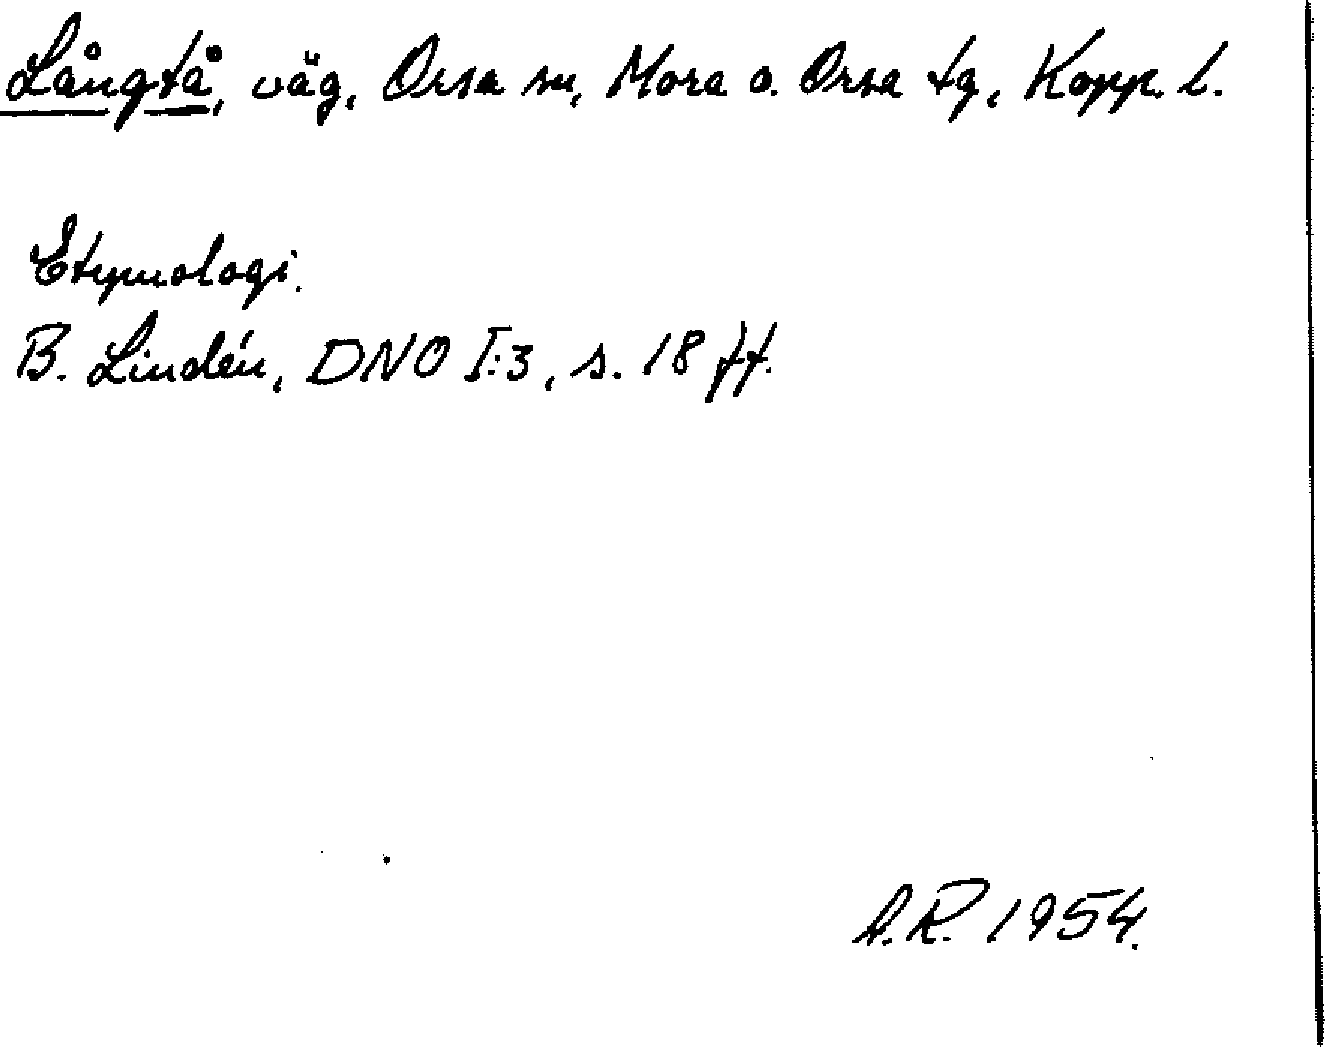 Långtå, väg, Orsa sn, Mora o. Orsa tg, Kopp. l.
Etymologi.
B. Lindén, DNO I:3, s. 18 ff.
A.R. 1954.